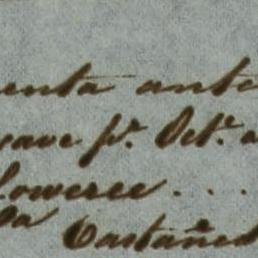 uenta ante
vave pr. Oct. a
Loweree ....
Da Castañed